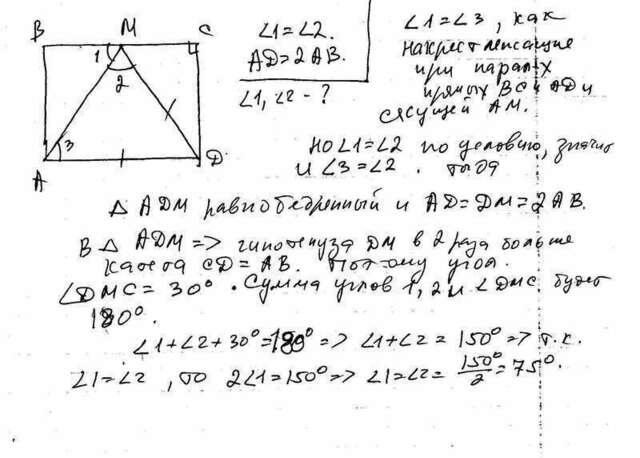 B M C
1 2
3
A D
∠1=∠2.
AD=2AB.
∠1, ∠2 - ?
∠1=∠3, как
накрест лежащие
при парал-х
прямых BC и AD и
секущей AM.
но ∠1=∠2 по условию, значит
и ∠3=∠2. тогда
△ ADM равнобедренный и AD=DM=2AB.
В △ ADM => гипотенуза DM в 2 раза больше
катета CD=AB. Поэтому угол.
∠DMC=30°. Сумма углов 1, 2 и ∠DMC будет
180°.
∠1+∠2+30°=180° => ∠1+∠2=150° => т.к.
∠1=∠2, то 2∠1=150° => ∠1=∠2= 150°/2 =75°.